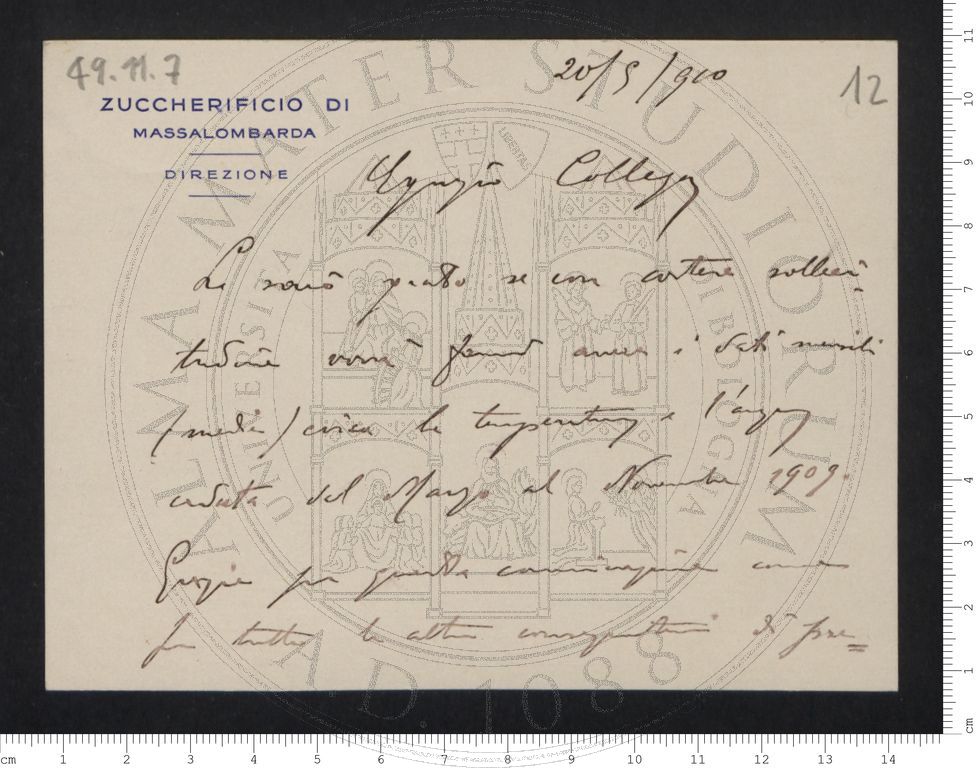 49.11.7
12
20/5/910
ZUCCHERIFICIO DI
MASSALOMBARDA
DIREZIONE
Egregio Collega
Le sarò grato se con cortese solleci=
tudine vorrà fornirmi ancora i dati mensili
(medie) circa la temperatura e l'acqua
caduta dal Marzo al Novembre 1909.
Grazie per questa comunicazione come
per tutte le altre di pre=
ALMA MATER STUDIORUM
A.D. 1088
UNIVERSITÀ DI BOLOGNA
LIBERTAS
cm 1 2 3 4 5 6 7 8 9 10 11 12 13 14
11
10
9
8
7
6
5
4
3
2
1
cm